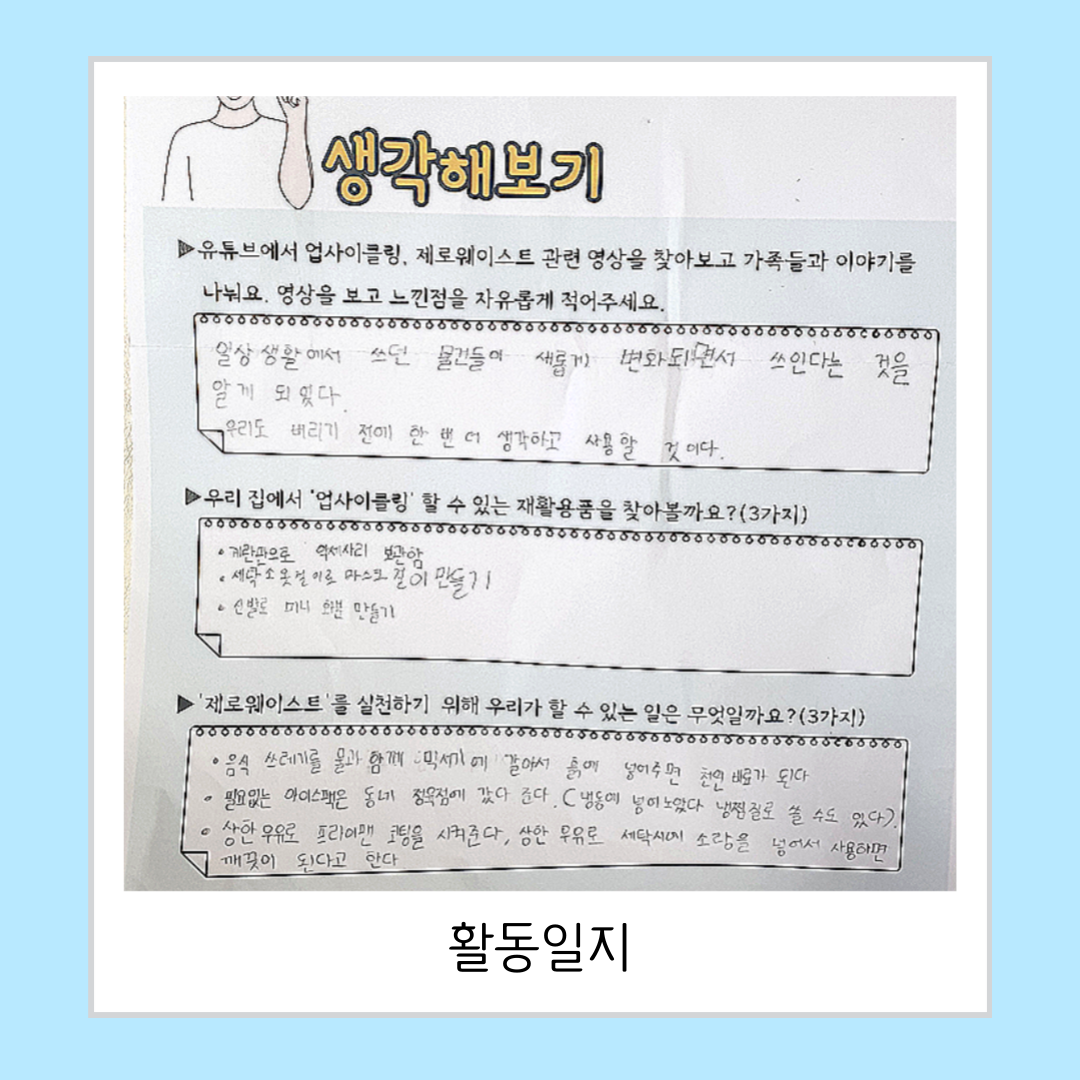 생각해보기
▶유튜브에서 업사이클링, 제로웨이스트 관련 영상을 찾아보고 가족들과 이야기를
나눠요. 영상을 보고 느낀점을 자유롭게 적어주세요.
일상생활에서 쓰던 물건들이 새롭게 변화되면서 쓰인다는 것을
알게 되었다.
우리도 버리기 전에 한 번 더 생각하고 사용할 것이다.
▶우리 집에서 '업사이클링' 할 수 있는 재활용품을 찾아볼까요?(3가지)
• 계란판으로 악세사리 보관함
• 세탁소 옷걸이로 마스크 걸이 만들기
• 신발로 미니 화분 만들기
▶'제로웨이스트'를 실천하기 위해 우리가 할 수 있는 일은 무엇일까요?(3가지)
• 음식 쓰레기를 물과 함께 믹서기에 갈아서 흙에 넣어주면 천연비료가 된다
• 필요없는 아이스팩은 동네 정육점에 갔다 준다. (냉동에 넣어놨다 냉찜질로 쓸 수도 있다).
• 상한우유로 프라이팬 코팅을 시켜준다, 상한 우유로 세탁시에 소량을 넣어서 사용하면
깨끗이 된다고 한다
활동일지